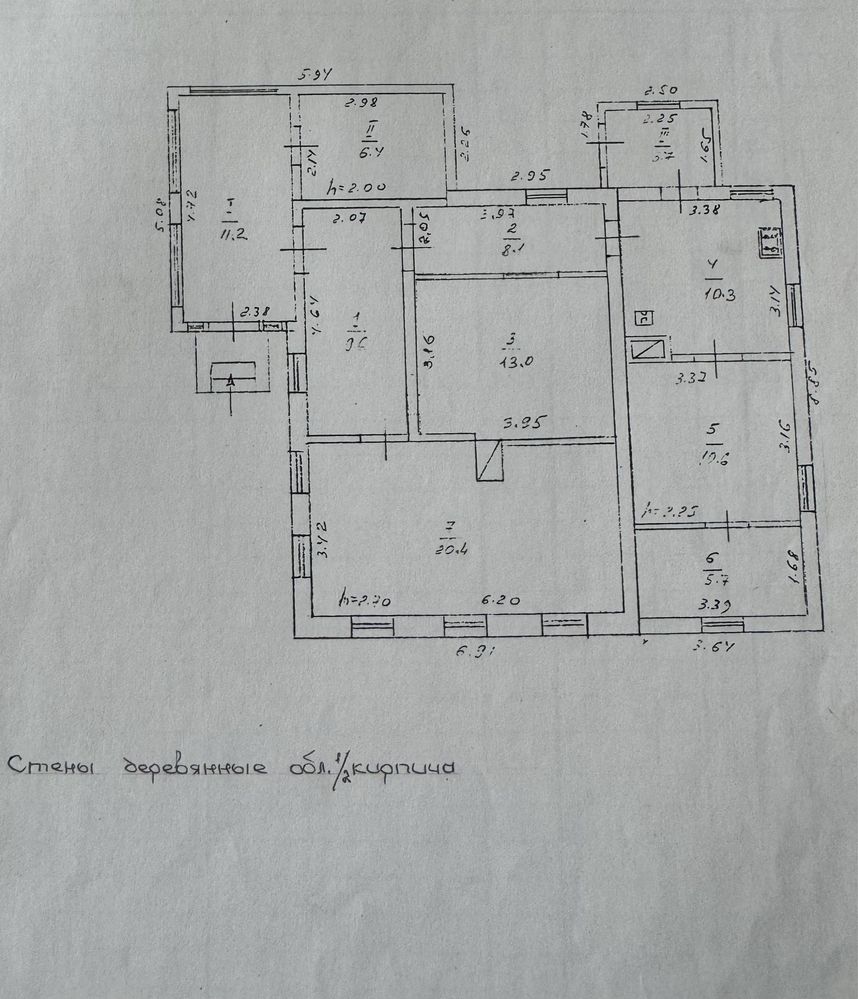 5.94
2.50
2.98
2.25
1.78
III
II
6.4
2.14
2.26
1.65
h=2.00
2.95
5.08
4.72
I
11.2
2.07
2.05
3.97
2
8.1
3.38
4
10.3
3.14
2.38
4.64
1
3.16
3
13.0
3.95
3.37
5.88
5
3.16
7
20.4
3.42
6
5.7
1.68
h=2.70
6.20
3.39
3.64
Стены деревянные обл. 1/2 кирпича